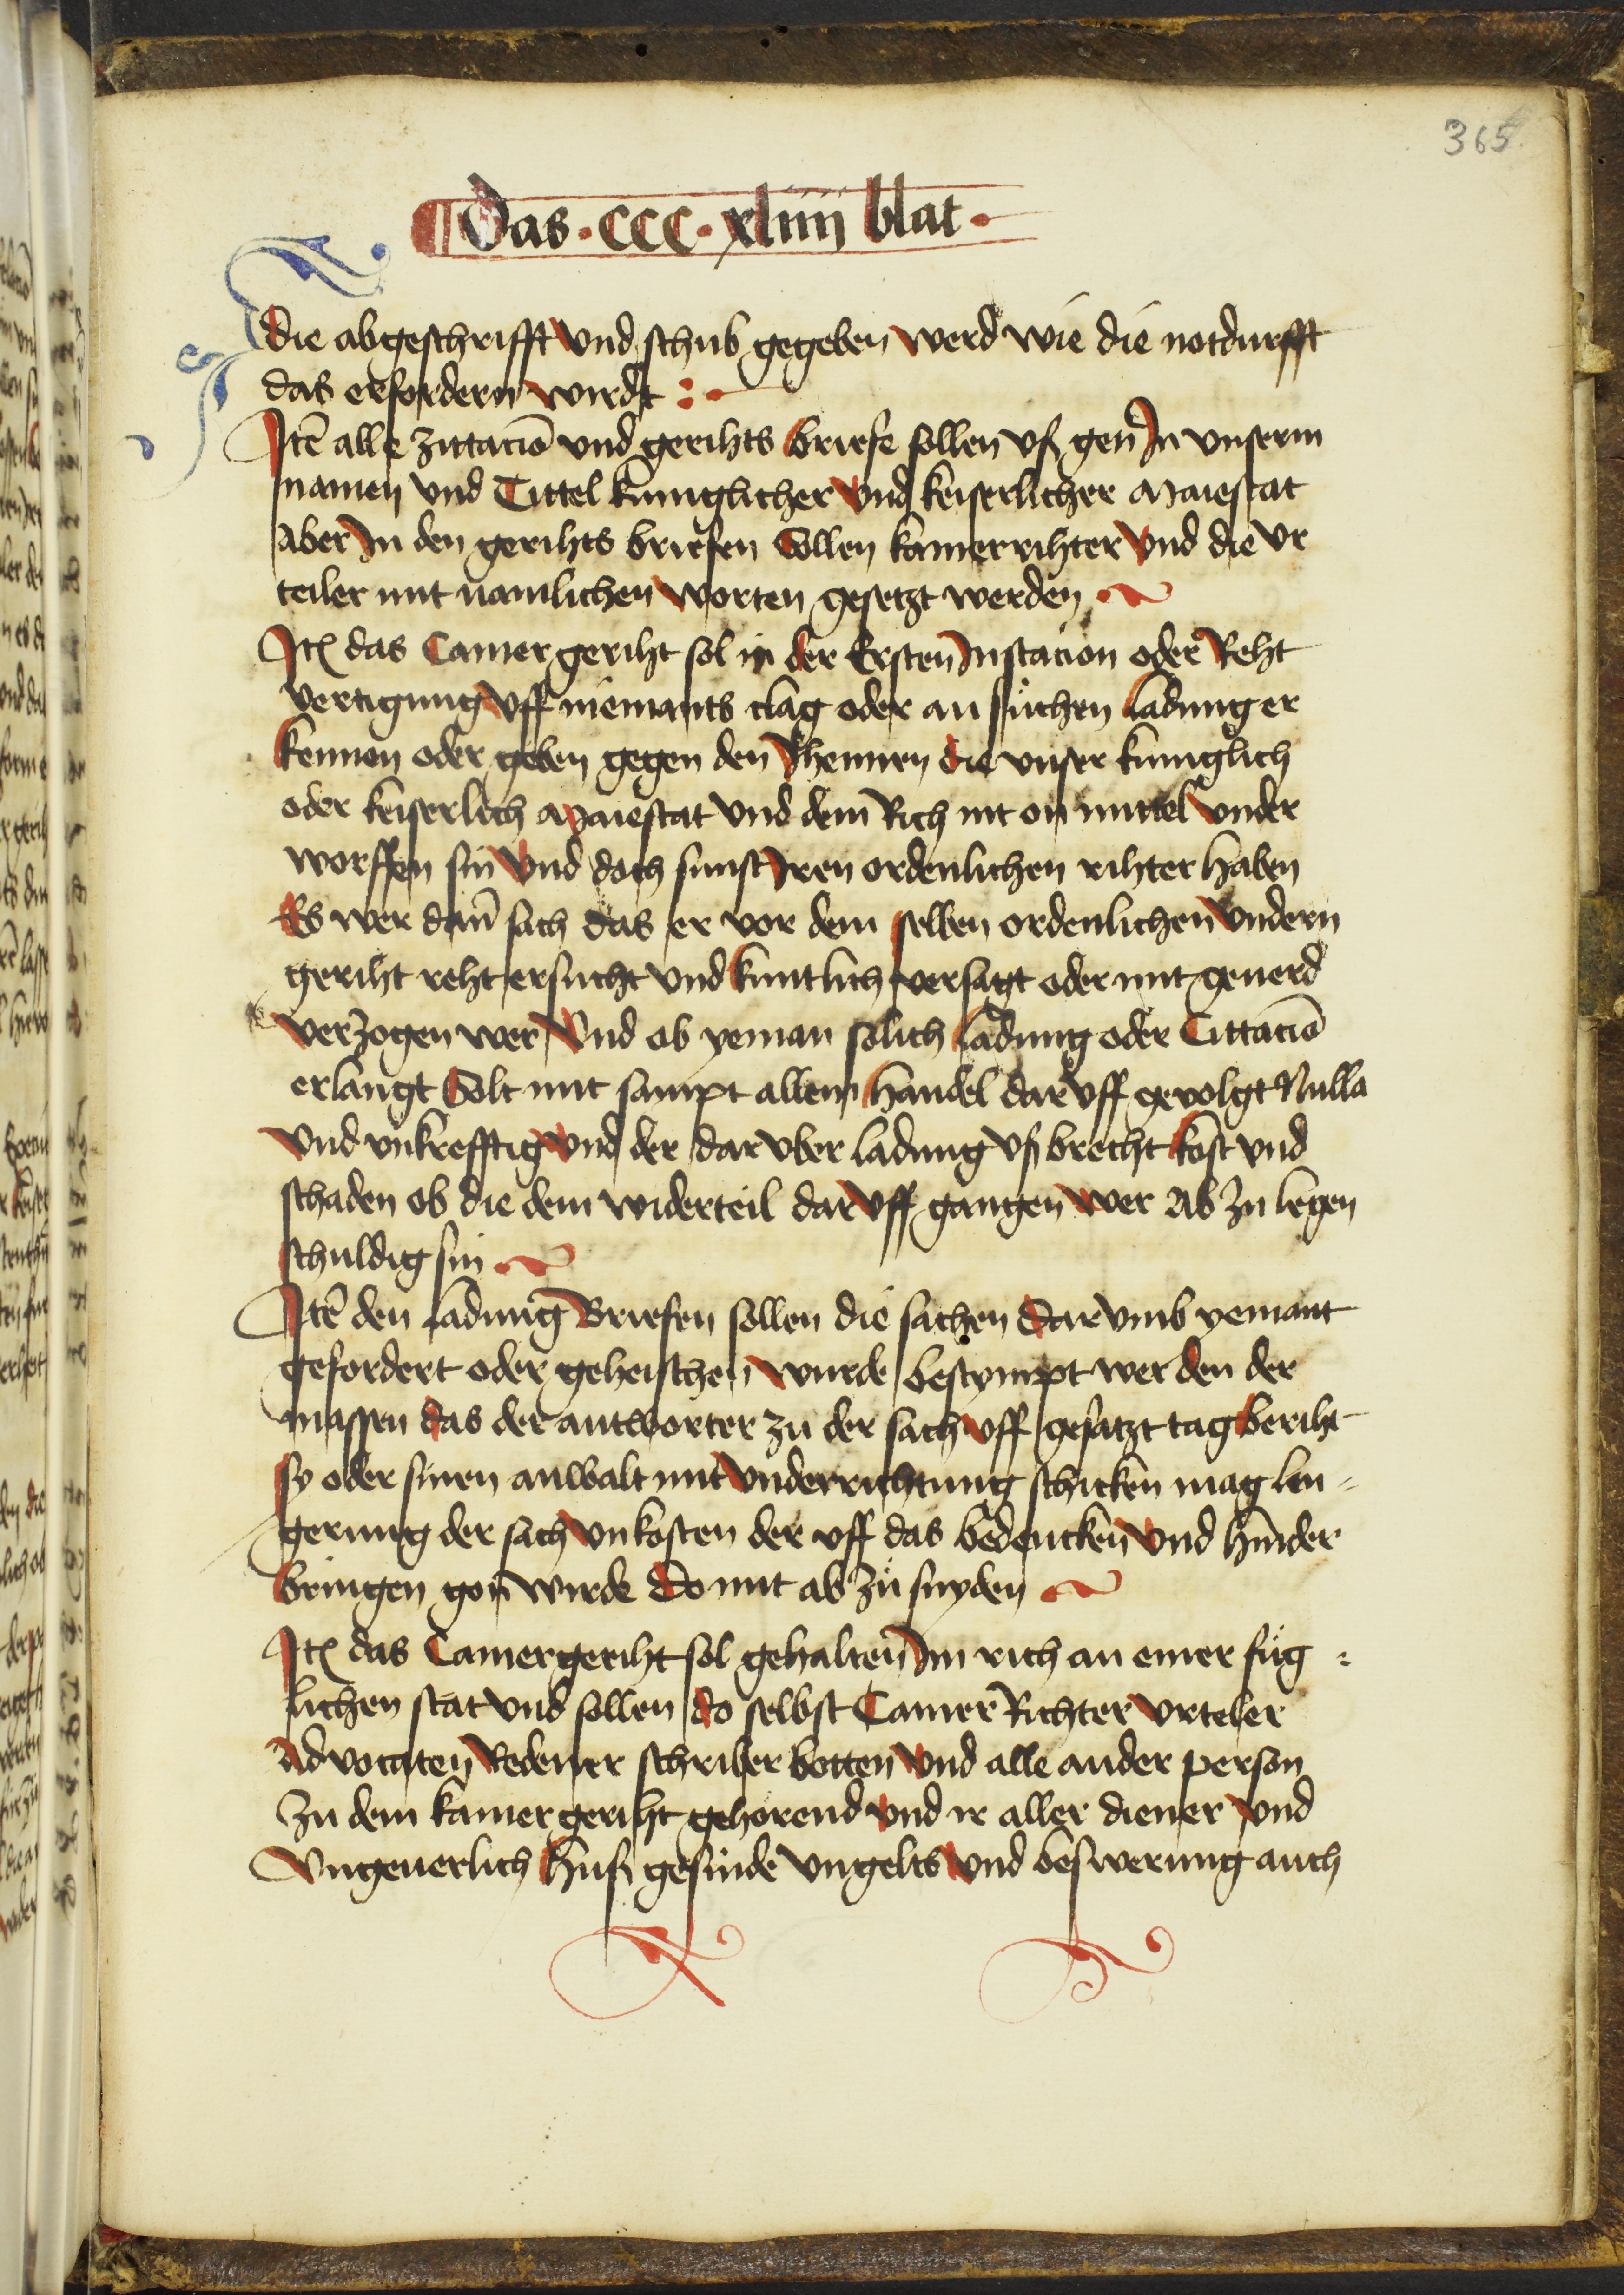 365
Das · CCC · xliiij blat ·
die abgeschrifft vnd schub gegeben werd wie die notdurfft
das erfordern wirdt :
Itē alle zittaciō vnd gerihts briefe sollen vß gen In vnserm
namen vnd Tittel kuniglicher vnd keiserlicher Maiestat
aber In den gerihts briefen Sollen kamerrihter vnd die vr
teiler mit namlichen worten gesetzt werden
Itē das Camer geriht sol in der Ersten Instacion oder Reht
vertigung vff niemants clag oder an sůchen ladung er
kennen oder geben gegen den Jhennen die vnser kuniglich
oder keiserlich Maiestat vnd dem Rich nit on mittel vnder
worffen sin vnd doch sunst Iren ordenlichen rihter haben
Es wer dañ sach das er vor dem selben ordenlichen vndern
geriht reht ersucht vnd kuntlich versagt oder mit geuerd
verzogen wer Vnd ob yeman solich ladung oder Cittaciō
erlangt Solt mit sampt allem handel dar vff gevolgt Nulla
vnd vnkrefftig vnd der dar vber ladung vß brecht kost vnd
schaden ob die dem widerteil dar vff gangen wer Ab zu legen
schuldig sin
Itē den ladung Briefen sollen die sachen dar vmb yemant
gefordert oder geheischen wurde bestympt wer den der
massen das der antworter zu der sach vff gesatzt tag beriht
sy oder sinen anwalt mit vnderrichtung schicken mag len
gerung der sach vnkosten der vff das bedencken vnd hinder
bringen gon wirde Do mit ab zů snyden
Itē das Camergeriht sol gehalten Im rich an einer fůg :
lichen stat vnd sollen do selbst Camer Richter vrteler
Advocaten Redener schriber botten vnd alle ander person
Zu dem kamer geriht gehorend vnd ir aller diener vnd
Vngeuerlich huß gesinde vngelts vnd beswerung auch